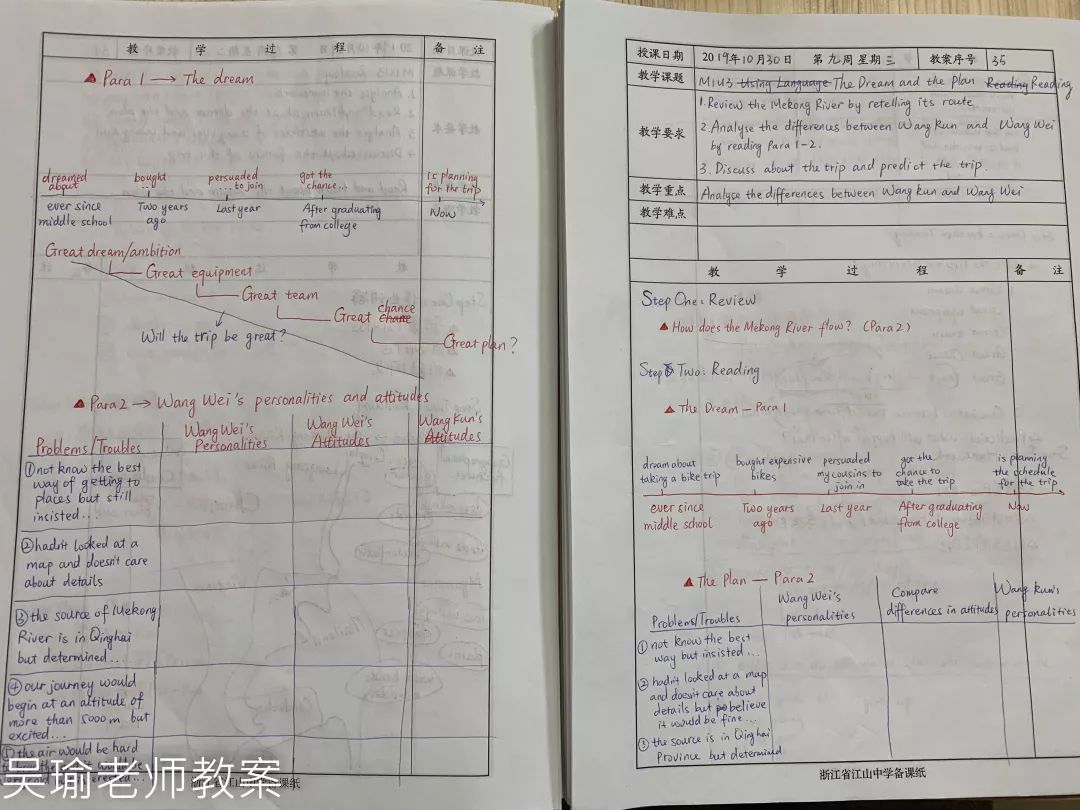 教 学 过 程 备 注
▲ Para 1 → The dream
dreamed about
bought ...
persuaded ... to join
got the chance...
is planning for the trip
ever since middle school
Two years ago
Last year
After graduating from college
Now
Great dream/ambition
Great equipment
Great team
Great chance
Great plan?
Will the trip be great?
▲ Para 2 → Wang Wei's personalities and attitudes
Problems/Troubles
Wang Wei's Personalities
Wang Wei's Attitudes
Wang Kun's Attitudes
①not know the best
way of getting to
places but still
insisted...
②hadn't looked at a
map and doesn't care
about details
③the source of Mekong
River is in Qinghai
but determined...
④our journey would
begin at an altitude of
more than 5000 m but
excited...
⑤the air would be hard
吴瑜老师教案
浙江省江山中学备课纸
授课日期 2019年10月30日 第九周 星期三 教案序号 35
教学课题 M1U3 Using Language The Dream and the Plan Reading Reading
教学要求
1. Review the Mekong River by retelling its route
2. Analyse the differences between Wang Kun and Wang Wei
by reading Para 1-2.
3. Discuss about the trip and predict the trip.
教学重点 Analyse the differences between Wang Kun and Wang Wei
教学难点
教 学 过 程 备 注
Step One: Review
▲ How does the Mekong River flow? (Para 2)
Step Two: Reading
▲ The Dream — Para 1
dream about taking a bike trip
bought expensive bikes
persuaded my cousins to join in
got the chance to take the trip
is planning the schedule for the trip
ever since middle school
Two years ago
Last year
After graduating from college
Now
▲ The Plan — Para 2
Problems/Troubles
Wang Wei's personalities
Compare differences in attitudes
Wang Kun's personalities
①not know the best
way but insisted...
②hadn't looked at a map
and doesn't care about
details but believe
it would be fine...
③the source is in Qinghai
Province but determined
浙江省江山中学备课纸